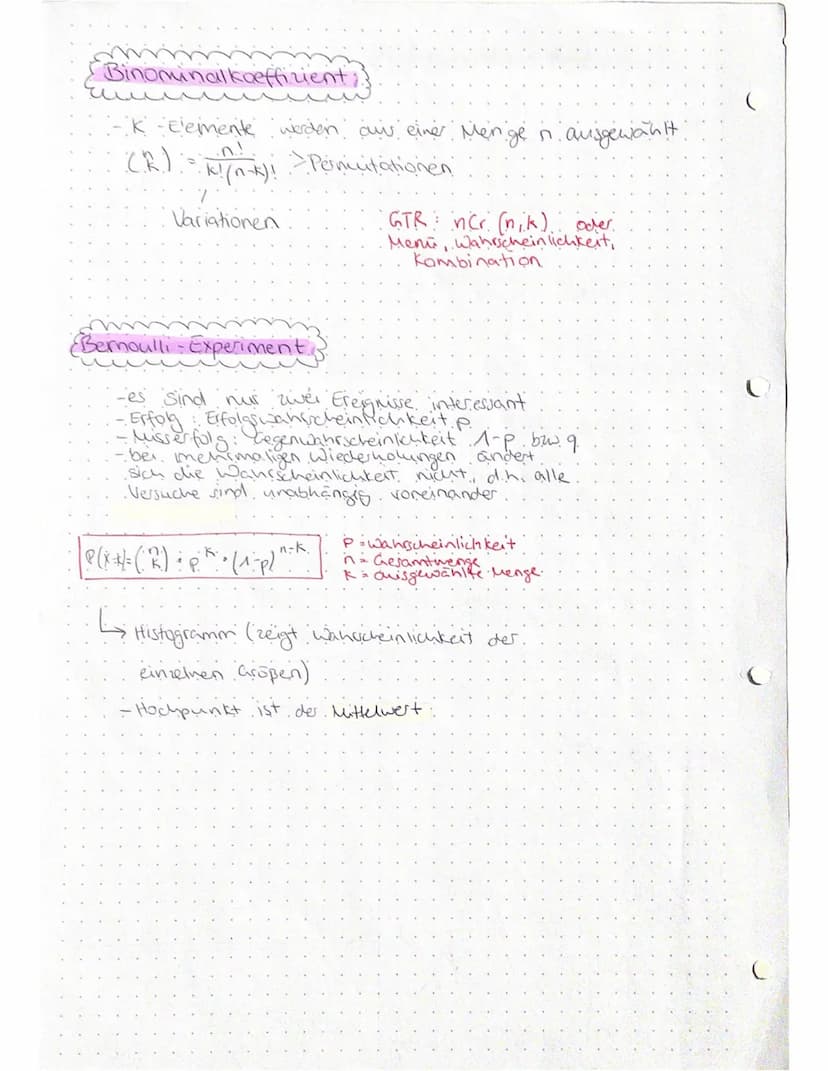 Binominalkoeffizient:
- K - Elemente werden aus einer Menge n ausgewählt
(n k) = n! / k!(n-k)! > Permutationen
Variationen
GTR: nCr (n,k) oder
Menü, Wahrscheinlichkeit,
Kombination
Bernoulli - Experiment
- es sind nur zwei Ereignisse interessant
- Erfolg: Erfolgswahrscheinlichkeit p
- Misserfolg: Gegenwahrscheinlichkeit 1-p bzw q
- bei mehrmaligen Wiederholungen ändert
sich die Wahrscheinlichkeit nicht, d.h. alle
Versuche sind unabhängig voneinander
P(X=k)=(n k) · p^k · (1-p)^n-k
P = Wahrscheinlichkeit
n = Gesamtmenge
K = ausgewählte Menge
↳ Histogramm (zeigt Wahrscheinlichkeit der
einzelnen Größen)
- Hochpunkt ist der Mittelwert